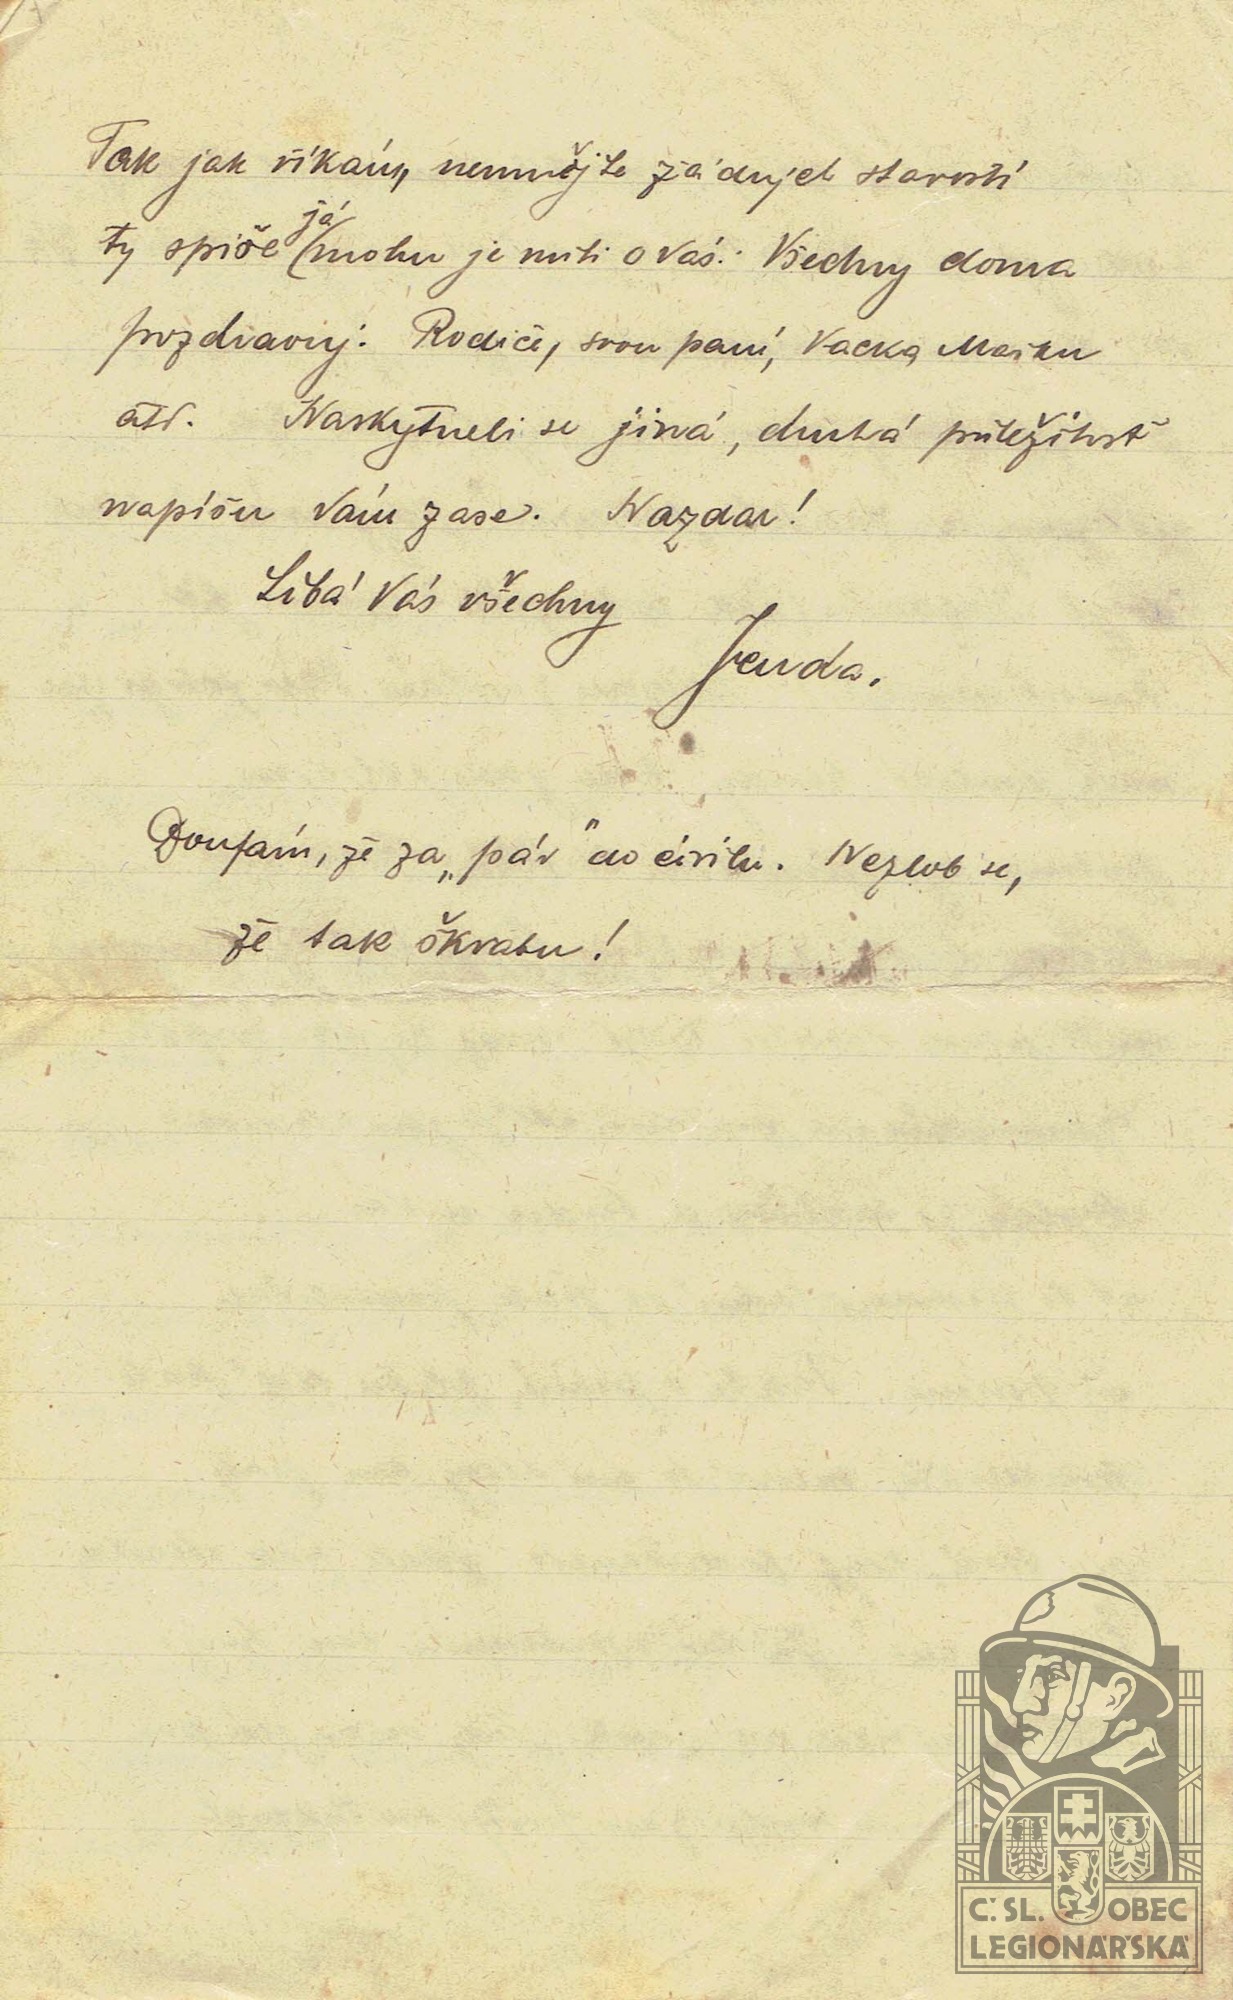 Tak jak říkám, nemnějte žádnjch starostí
ty spiše já mohu je miti o Vás. Všechny doma
pozdravuj. Rodiče, svou paní, Vacka Mařku
atd. Naskytneli se jiná, druhá přiležitost
napíšu Vám zase. Nazdar!
Líbá Vás všechny
Jenda.
Doufám, že za „pár" do civilu. Nezlob se,
že tak škrabu!
Č. SL. OBEC
LEGIONÁŘSKÁ